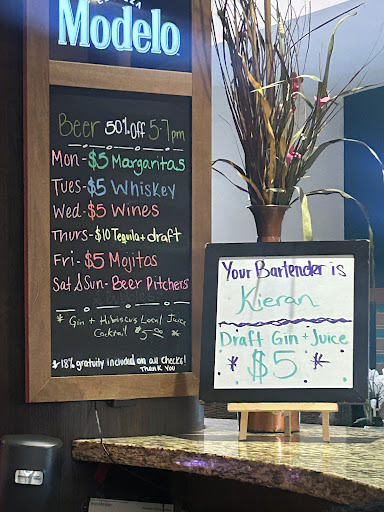 Modelo
Beer 50% off 5-7pm
Mon - $5 Margaritas
Tues - $5 Whiskey
Wed - $5 Wines
Thurs - $10 Tequila + draft
Fri - $5 Mojitos
Sat & Sun - Beer Pitchers
* Gin + Hibiscus Local Juice
Cocktail $5.00 *
* 18% gratuity included on all checks!
Thank You
Your Bartender is
Kieran
Draft Gin + Juice
* $5 *